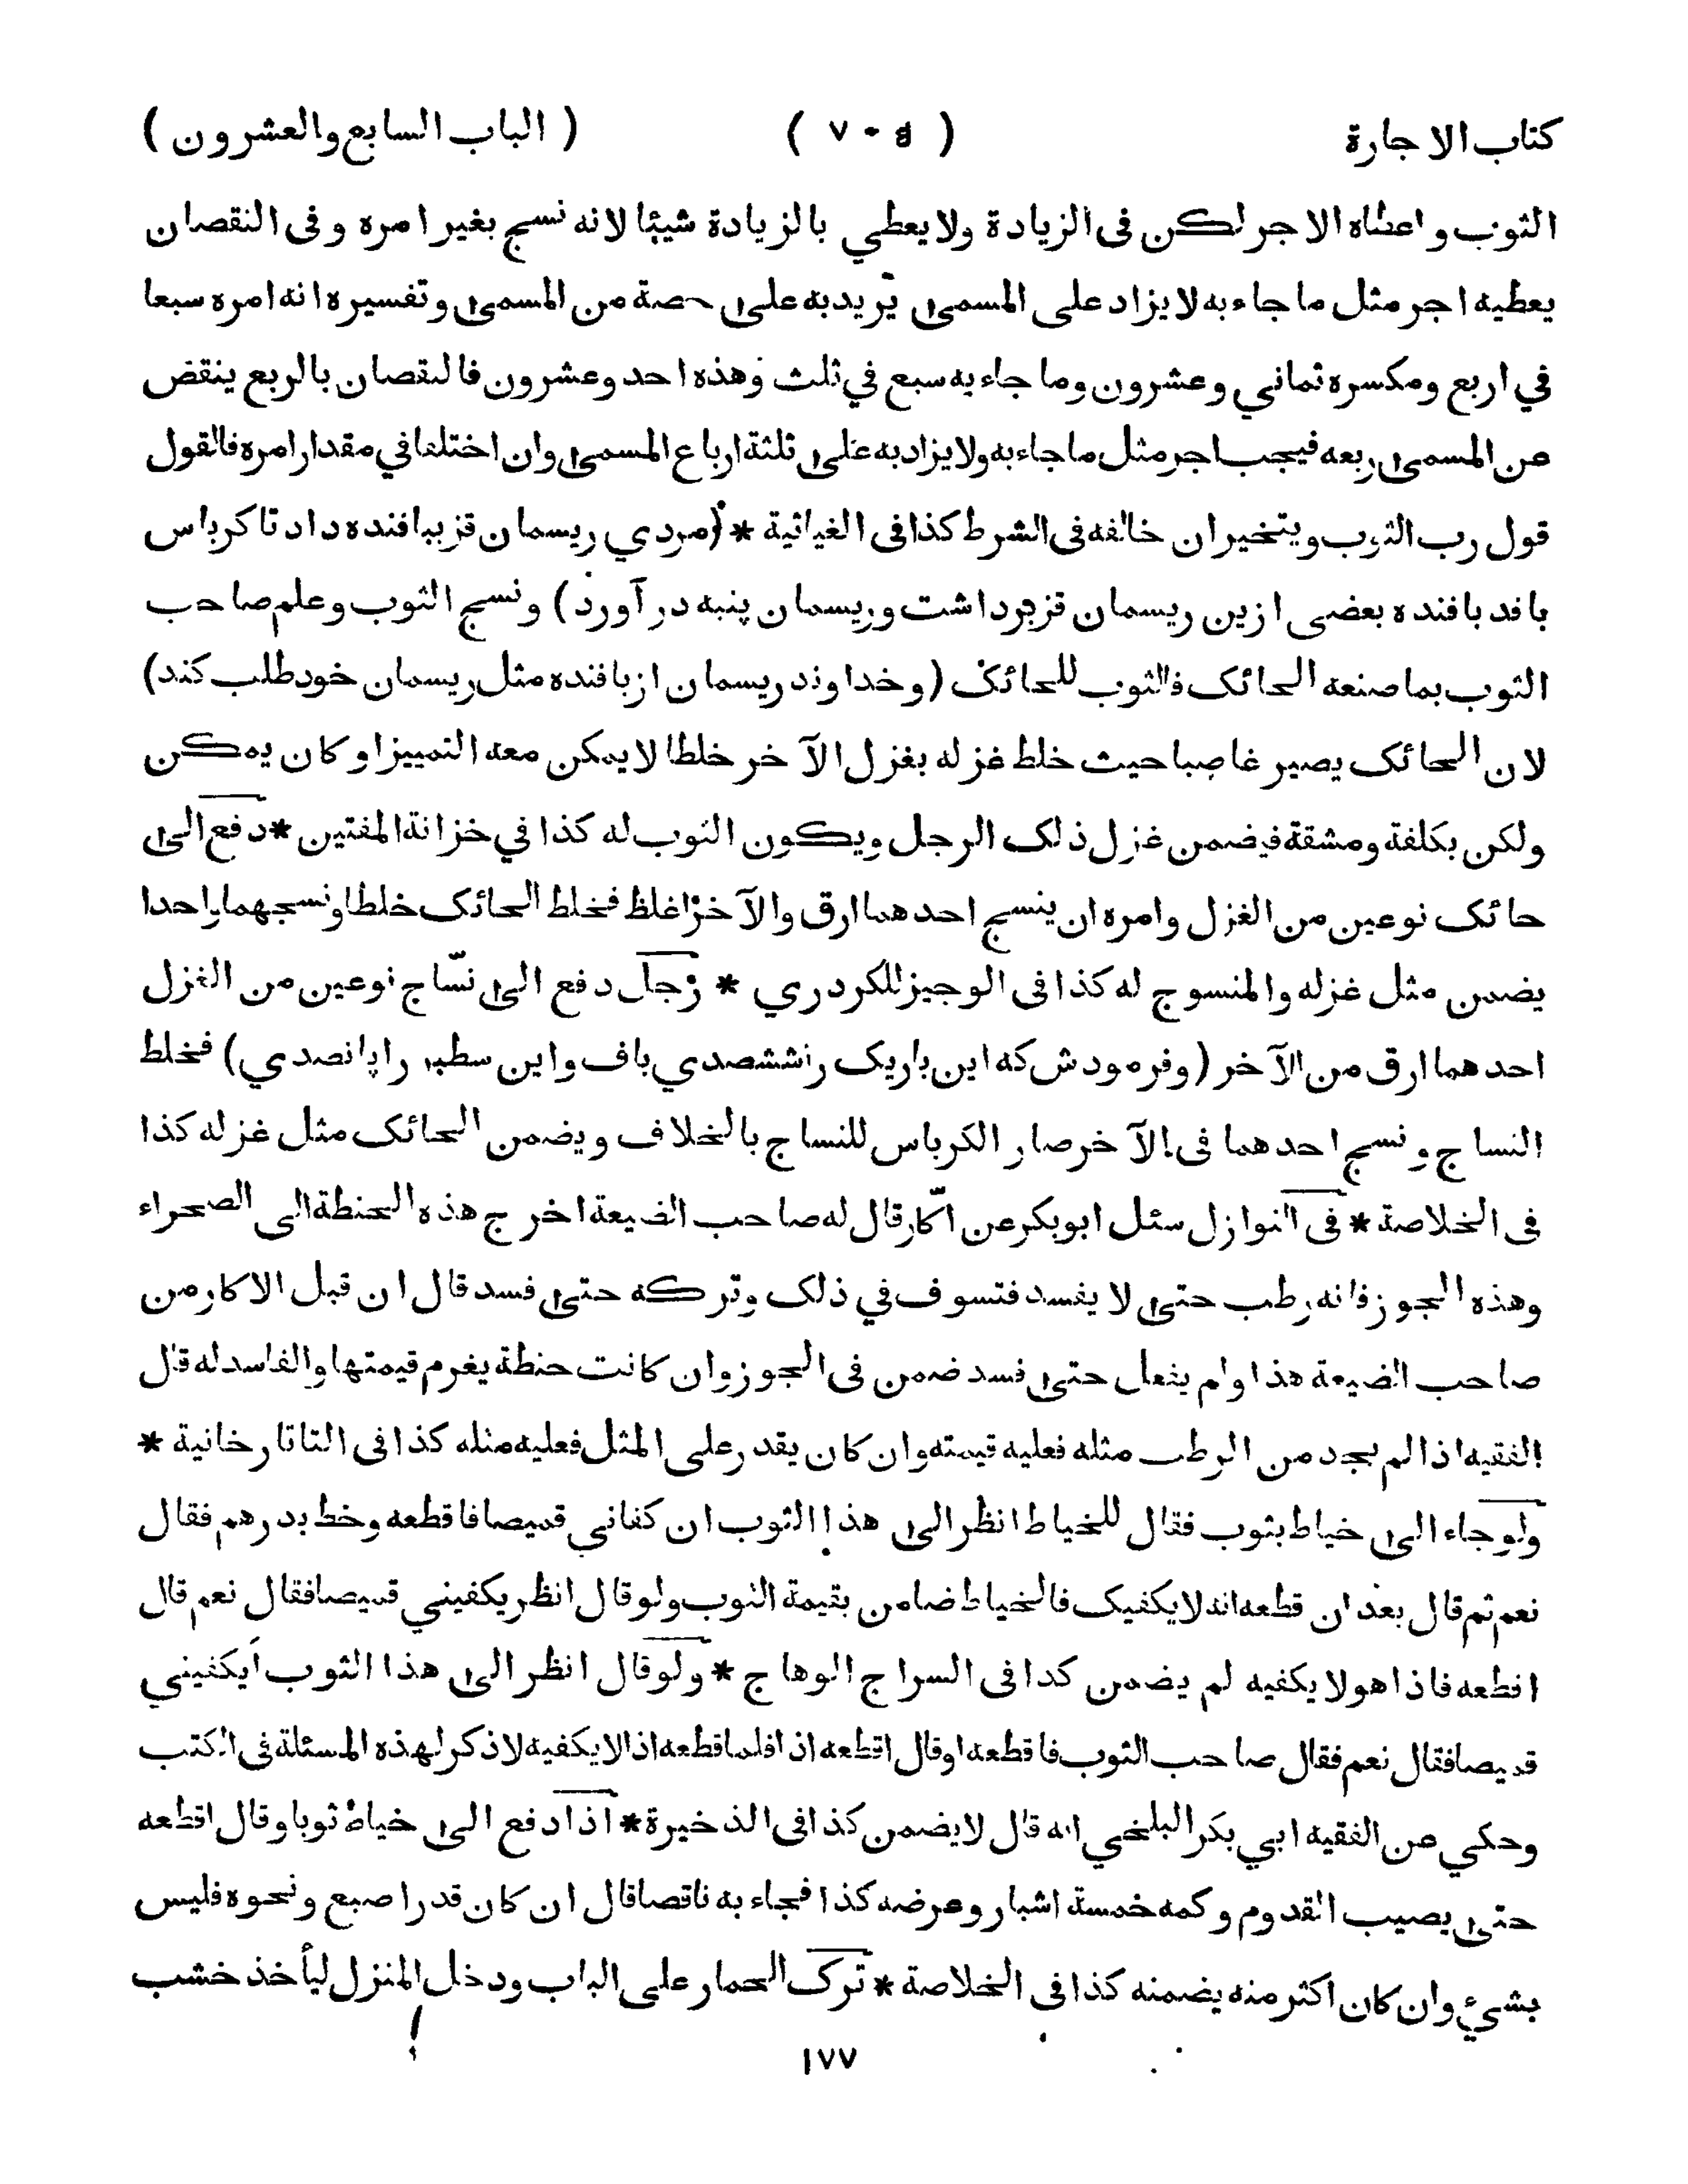 كتاب الاجارة ( ٧٠٥ ) ( الباب السابع والعشرون )
الثوب واعطاه الاجر لكن فى الزيادة ولايعطي بالزيادة شيئا لانه نسج بغير امره وفى النقصان
يعطيه اجر مثل ما جاء به لا يزاد على المسمى يريد به على حصة من المسمى وتفسيره انه امره سبعا
في اربع ومكسره ثماني وعشرون وما جاء به سبع في ثلث وهذه احد وعشرون فالنقصان بالربع ينقض
عن المسمى ربعه فيجب اجر مثل ما جاء به ولا يزاد به على ثلثة ارباع المسمى وان اختلفا في مقدار امره فالقول
قول رب الثوب ويتخير ان خالفه فى الشرط كذا فى الغياثية * (مردي ريسمان قز ببافنده داد تا كرباس
بافد بافنده بعضى ازين ريسمان قز برداشت وريسمان پنبه در آورد) ونسج الثوب وعلم صاحب
الثوب بما صنعه الحائک فالثوب للحائک (وخداوند ريسمان از بافنده مثل ريسمان خود طلب كند)
لان الحائک يصير غاصبا حيث خلط غزله بغزل الآخر خلطا لا يمكن معه التمييز او كان يمكن
ولكن بكلفة ومشقة فيضمن غزل ذلک الرجل ويكون الثوب له كذا في خزانة المفتين * دفع الى
حائک نوعين من الغزل وامره ان ينسج احدهما ارق والآخر اغلظ فخلط الحائک خلطا ونسجهما واحدا
يضمن مثل غزله والمنسوج له كذا فى الوجيز للكردري * رجل دفع الى نسّاج نوعين من الغزل
احدهما ارق من الآخر (وفرمودش كه اين باريک را ششصدي باف واين سطبر را پانصدي) فخلط
النساج ونسج احدهما فى الآخر صار الكرباس للنساج بالخلاف ويضمن الحائک مثل غزله كذا
فى الخلاصة * فى النوازل سئل ابوبكر عن اكّار قال له صاحب الضيعة اخرج هذه الحنطة الى الصحراء
وهذه الجوز فانه رطب حتى لا يفسد فتسوف في ذلک وتركه حتى فسد قال ان قبل الاكار من
صاحب الضيعة هذا ولم يفعل حتى فسد ضمن فى الجوز وان كانت حنطة يغرم قيمتها والفاسد له قال
الفقيه اذا لم يجد من الرطب مثله فعليه قيمته وان كان يقدر على المثل فعليه مثله كذا فى التاتارخانية *
ولو جاء الى خياط بثوب فقال للخياط انظر الى هذا الثوب ان كفاني قميصا فاقطعه وخط بدرهم فقال
نعم ثم قال بعد ان قطعه انه لا يكفيک فالخياط ضامن بقيمة الثوب ولو قال انظر يكفيني قميصا فقال نعم قال
اقطعه فاذا هو لا يكفيه لم يضمن كذا فى السراج الوهاج * ولو قال انظر الى هذا الثوب أيكفيني
قميصا فقال نعم فقال صاحب الثوب فاقطعه او قال اقطعه اذا فلما قطعه اذا لا يكفيه لا ذكر لهذه المسئلة فى الكتب
وحكي عن الفقيه ابي بكر البلخي انه قال لا يضمن كذا فى الذخيرة * اذا دفع الى خياط ثوبا وقال اقطعه
حتى يصيب القدوم وكمه خمسة اشبار وعرضه كذا فجاء به ناقصا قال ان كان قدر اصبع ونحوه فليس
بشيئ وان كان اكثر منه يضمنه كذا فى الخلاصة * ترک الحمار على الباب ودخل المنزل ليأخذ خشب
١٧٧